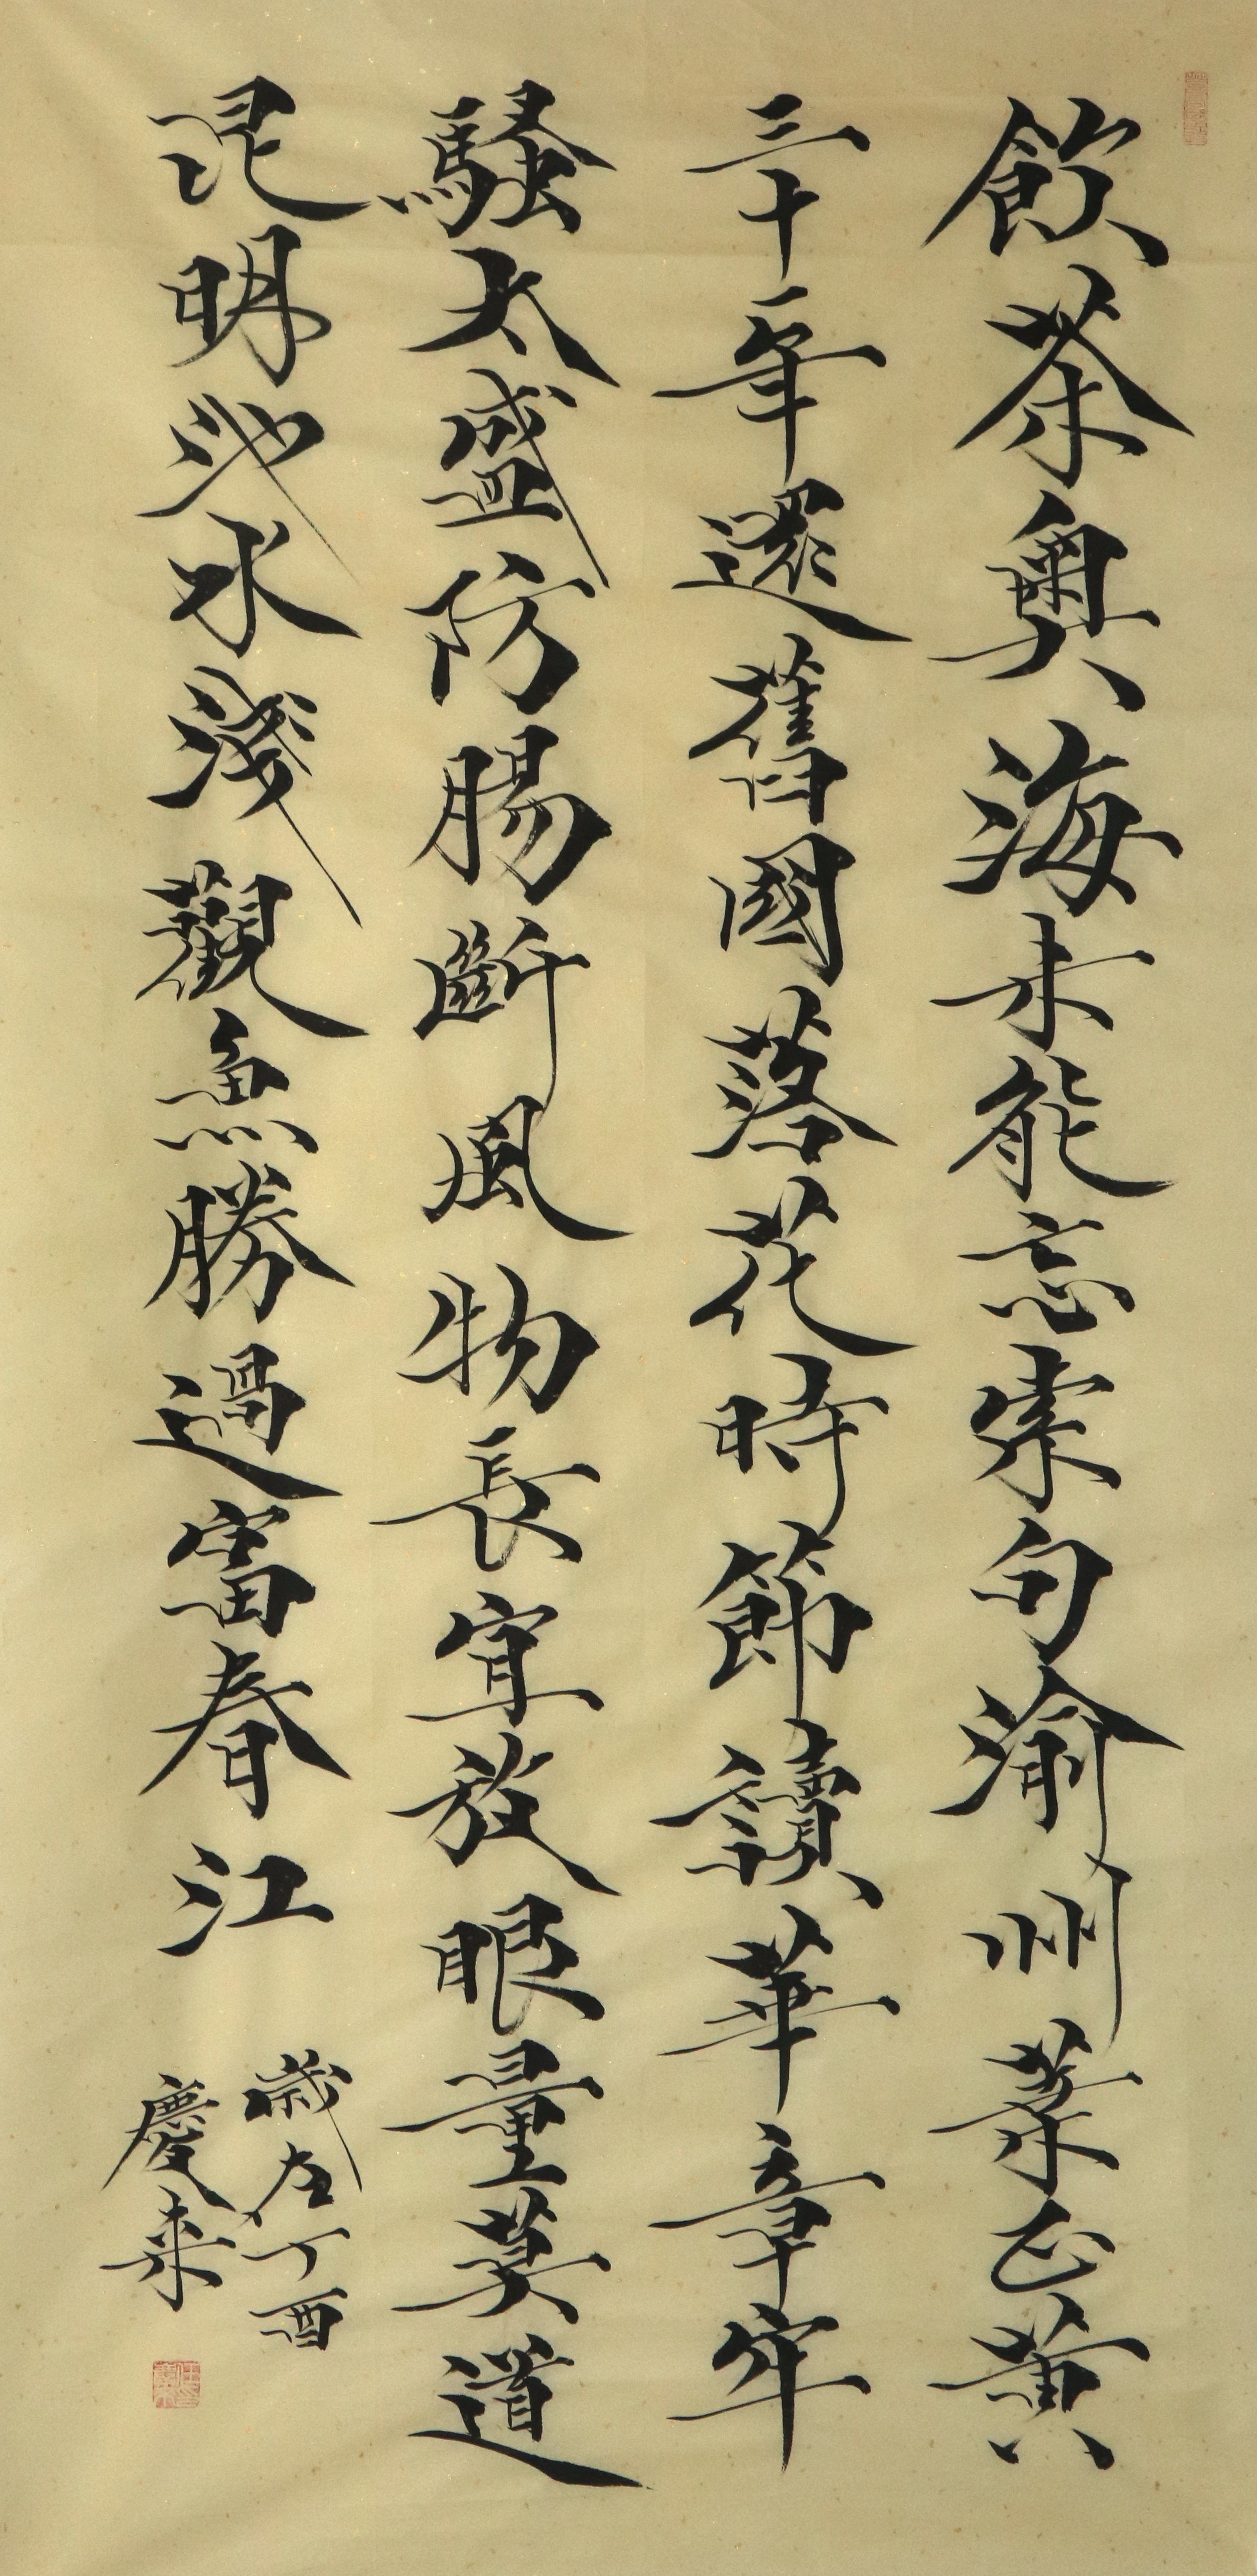 飲茶奧海未能忘索句渝州葉正黃
三十一年還舊國落花時節讀華章牢
騷太盛防腸斷風物長宜放眼量莫道
昆明池水淺觀魚勝過富春江
歲在丁酉
慶来